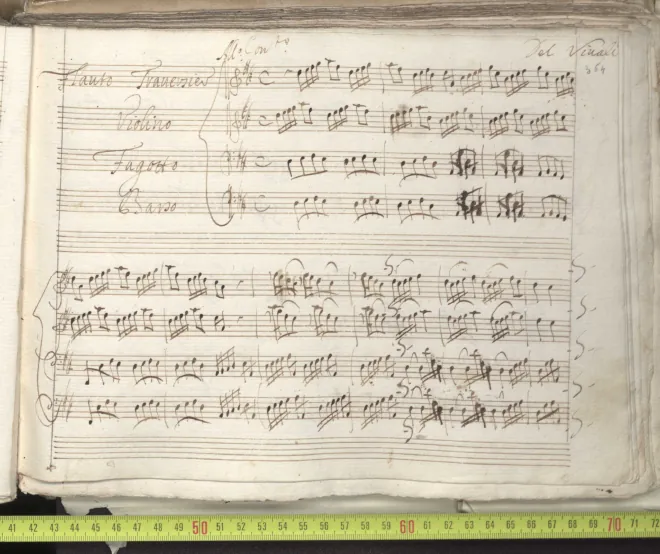 Del Vivaldi
364
Flauto Traversier
Violino
Fagotto
Basso
41 42 43 44 45 46 47 48 49 50 51 52 53 54 55 56 57 58 59 60 61 62 63 64 65 66 67 68 69 70 71 72